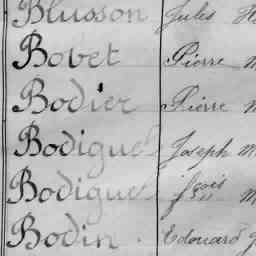 Blusson Jules
Bobet Pierre M
Bodier Pierre M
Bodigue Joseph M
Bodigue fçois M
Bodin. Edouard J